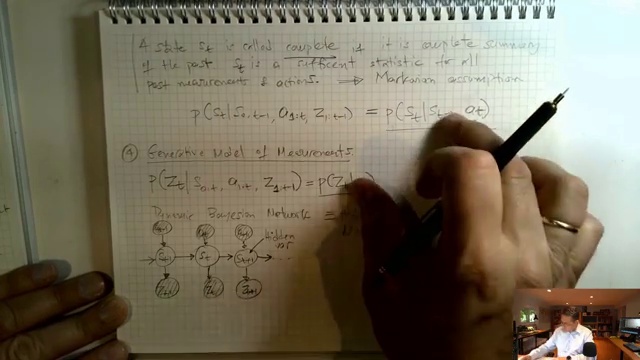 A state St is called complete if it is complete summary
of the past St is a sufficent statistic for all
past measurement & actions. ⟹ Markovian assumption
p(St|S0:t-1, a1:t, Z1:t-1) = p(St|St-1, at)
④ Generative Model of Measurements.
p(Zt|S0:t, a1:t, Z1:t-1) = p(Zt|
Dynamic Bayesian Network ≡
hidden
St-1 St St+1 ...
Zt-1 Zt Zt+1